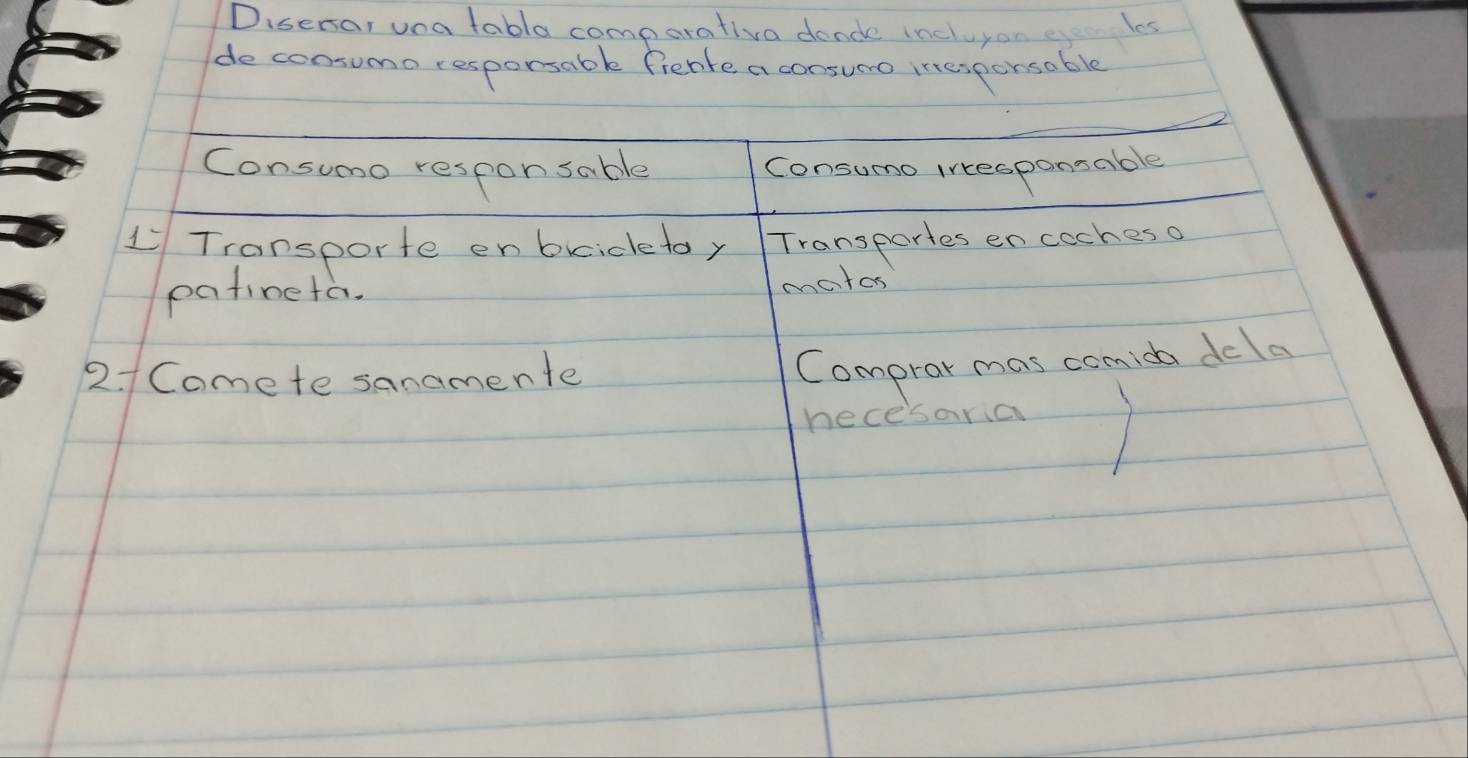 Diseñar una tabla comparativa donde incluyan ejemples
de consumo responsable frente a consumo irresponsable
Consumo responsable Consumo irresponsable
1- Transporte en bicicleta y Transportes en coches o
patineta. motos
2.- Comete sanamente Comprar mas comida de la
necesaria